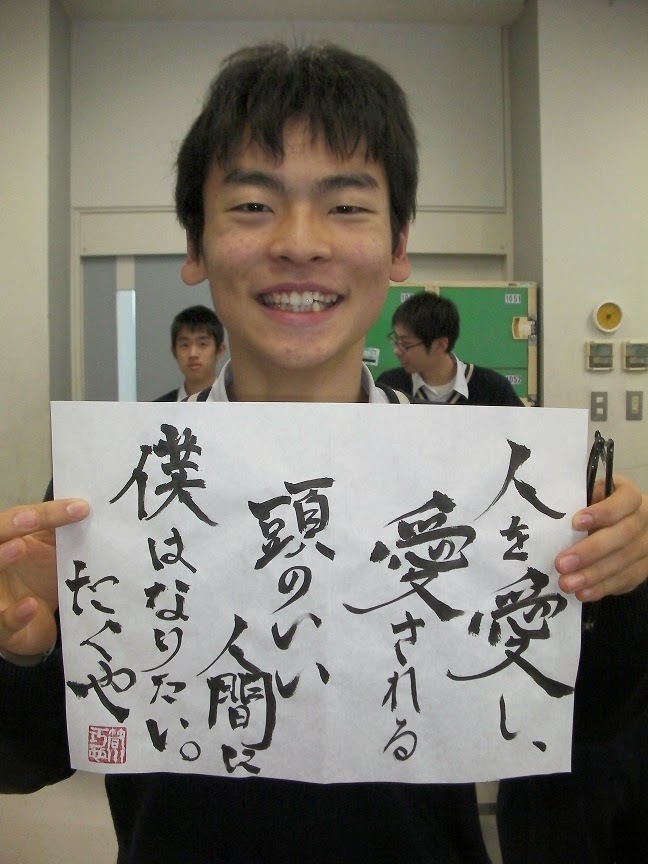 人を愛し、
愛される
頭のいい
人間に
僕はなりたい。
たくや
1051
1052